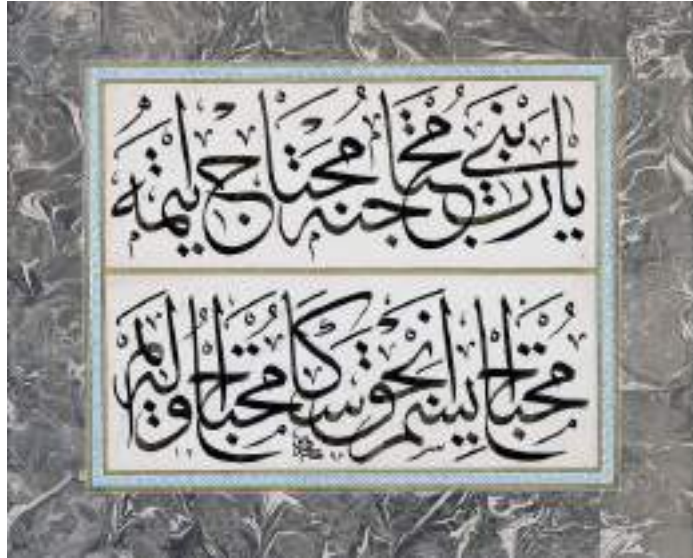 يارب بنى محتاجنه محتاج ايتمه
محتاج ايسم انجق سكا محتاج اوله يم